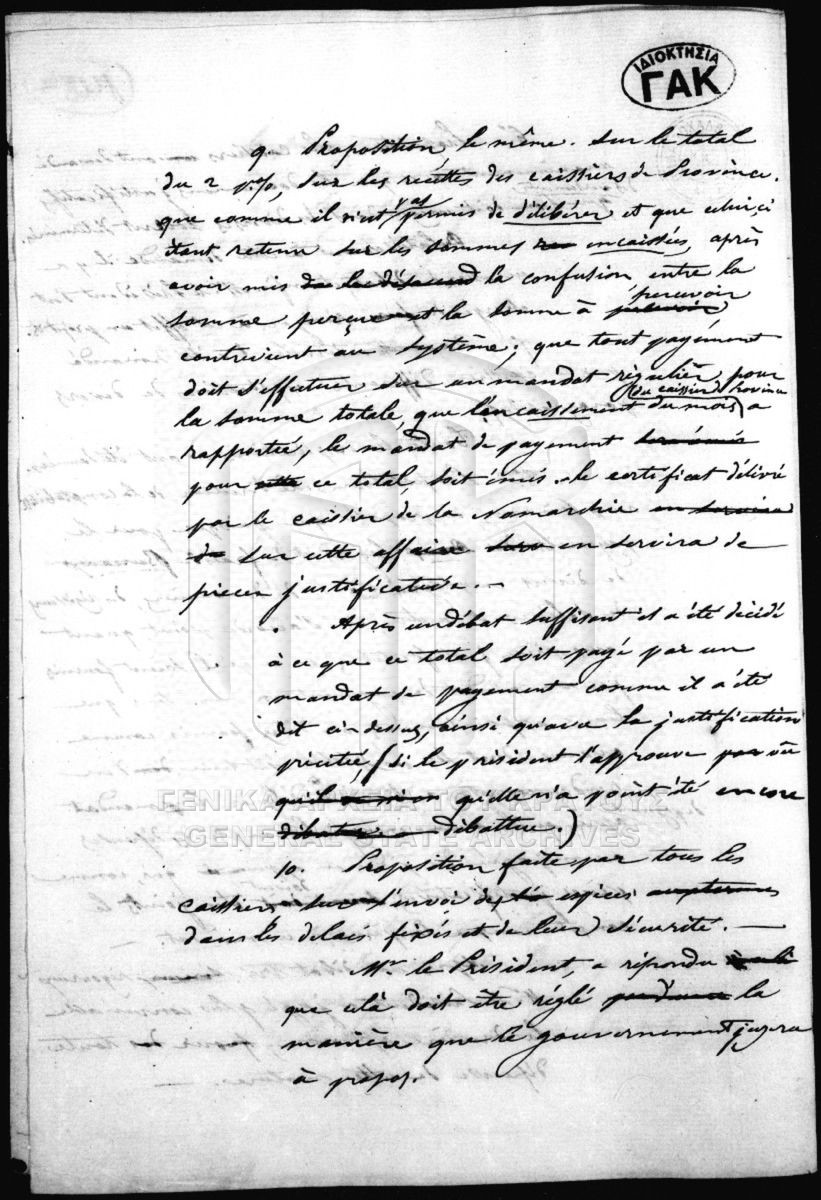 ΙΔΙΟΚΤΗΣΙΑ
ΓΑΚ
9. Proposition le même. Sur le total
du 2 p.%, sur les recettes des caissiers de Province.
que comme il n'est pas permis de délibérer et que celui-ci
étant retenu sur les sommes encaissées, après
avoir mis de la confusion entre la
somme perçue et la somme à percevoir
contrevient au système; que tout payement
doit s'effectuer sur un mandat régulier pour
la somme totale, que l'encaissement du mois (du caissier Province) a
rapportée, le mandat de payement
pour ce total, soit émis. le certificat délivré
par le caissier de la Nomarchie
sur cette affaire en servira de
pièces justificative. —
Après un débat suffisant il a été décidé
à ce que ce total soit payé par un
mandat de payement comme il a été
dit ci-dessus, ainsi qu'avec la justification
précitée, (si le président l'approuve vu
qu'elle n'a point été encore
débattue.)
ΓΕΝΙΚΑ ΑΡΧΕΙΑ ΤΟΥ ΚΡΑΤΟΥΣ
GENERAL STATE ARCHIVES
10. Proposition faite par tous les
caissiers sur l'envoi des espèces
dans les délais fixés et de leur sécurité. —
Mr. le Président, a répondu
que celà doit être réglé la
manière que le gouvernement jugera
à propos.